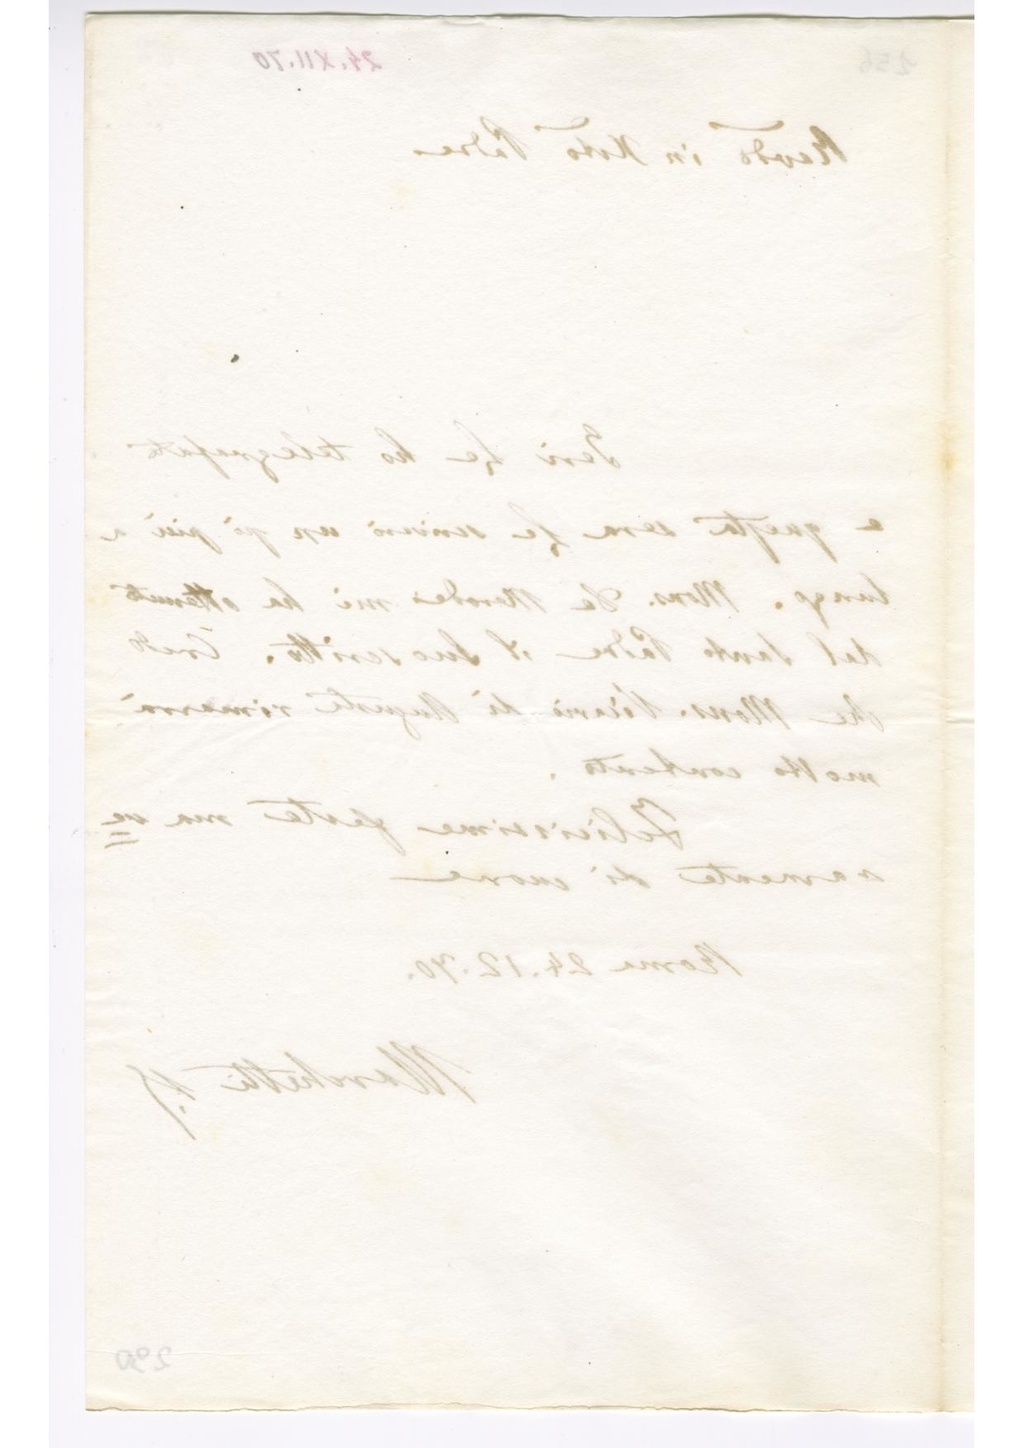 24.XII.70
Revdo in Xsto Padre
Ieri Le ho telegrafato
e questa sera Le scrivo un pò più a
lungo. Mons. De Merode mi ha ottenuto
dal Santo Padre il Suo scritto. Credo
che Mons. Vicario di Augusta rimarrà
molto contento.
Felicissime feste ma ve
ramente di cuore
Roma 24.12.70.
Marchetti
290